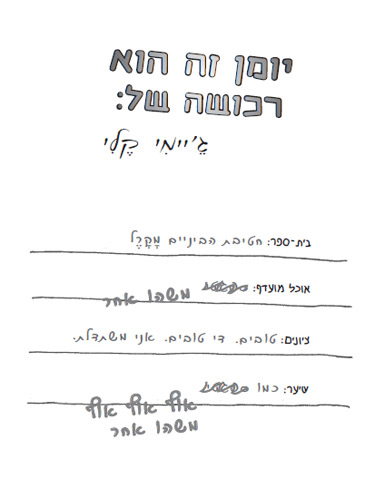 יומן זה הוא
רכושה של:
גֶ'יימִי קֶלִי
בית-ספר: חטיבת הביניים מָקָרֶל
אוכל מועדף: משהו אחר
ציונים: טובים. די טובים. אני משתדלת.
שיער: כמו
אוף אוף אוף
משהו אחר